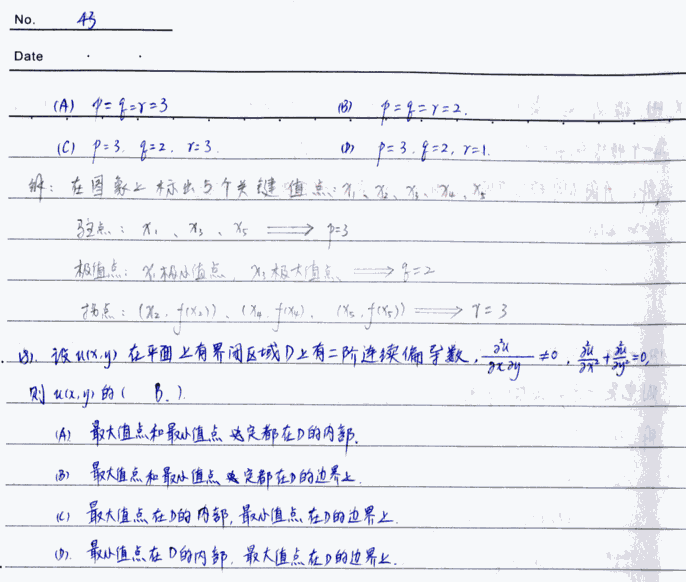 No. 43
Date · ·
(A) p=q=r=3 (B) p=q=r=2.
(C) p=3. q=2. r=3. (D) p=3. q=2, r=1.
解: 在图象上标出5个关键值点: x₁、x₂、x₃、x₄、x₅
驻点: x₁、x₃、x₅ ⟹ p=3
极值点: x₁极小值点, x₃极大值点 ⟹ q=2
拐点: (x₂, f(x₂))、(x₄, f(x₄)、(x₅, f(x₅)) ⟹ r=3
设u(x,y) 在平面上有界闭区域D上有二阶连续偏导数, ∂²u/∂x∂y ≠0, ∂²u/∂x²+∂²u/∂y²=0,
则 u(x,y) 的 ( B. ).
(A) 最大值点和最小值点必定都在D的内部.
(B) 最大值点和最小值点必定都在D的边界上.
(C) 最大值点在D的内部, 最小值点在D的边界上.
(D). 最小值点在D的内部, 最大值点在D的边界上.